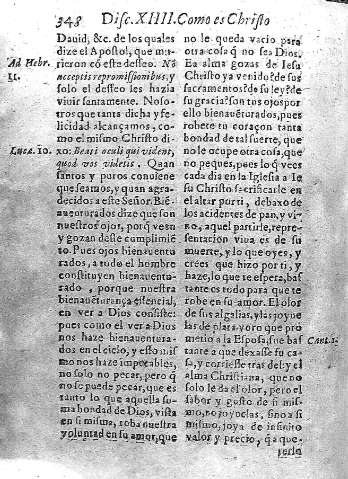 348 Disc. XIIII. Como es Christo
Dauid, &c. de los quales
dize el Apostol, que mu-
rieron cõ este desseo. Nõ
acceptis repromissionibus, y
solo el desseo les hazia
viuir santamente. Noso-
tros que tanta dicha y fe-
licidad alcançamos, co-
mo el mismo Christo di-
xo: Beati oculi qui vident,
quod vos videtis. Quan
santos y puros conuiene
que seamos, y quan agra-
decidos a este Señor. Bië-
auenturados dize que son
nuestros ojos, porq̃ veen
y gozan desse cumplimië-
to. Pues ojos bienauentu-
rados, a todo el hombre
constituyen bienauentu-
rado, porque nuestra
bienauenturãça essencial,
en ver a Dios consiste:
pues como el ver a Dios
nos haze bienauentura-
dos en el cielo, y esto mis-
mo nos haze impecables,
no solo no pecar, pero q̃
no se puede pecar, que es
tanto lo que aquella su-
ma bondad de Dios, vista
en si misma, roba nuestra
voluntad en su amor, que
Ad Hebr.
11.
Luca. 10.
no le queda vacio para
otra cosa q̃ no sea Dios.
Ea alma gozas de Iesu
Christo ya venido? de sus
sacramentos? de su ley? de
su gracia? son tus ojos por
ello bienauẽturados, pues
robete tu coraçon tanta
bondad de tal suerte, que
no le ocupe otra cosa, que
no peques, pues lo q̃ vees
cada dia en la Iglesia a Ie
su Christo sacrificarle en
el altar por ti, debaxo de
los accidentes de pan, y vi-
no, aquel partirle, repre-
sentacion viua es de su
muerte, y lo que oyes, y
crees que hizo por ti, y
haze, lo que te espera, bas
tante es todo para que te
robe en su amor. El olor
de sus algalias, y las joyue
las de plata y oro que pro
metio a la Esposa, fue bas
tante a que dexasse su ca-
sa, y corriesse tras del: y el
alma Christiana, que no
solo le da el olor, pero el
sabor y gusto de si mis-
mo, no joyuelas, sino a si
mismo, joya de infinito
valor y precio, q̃ a que-
rerlo
Cant. 1.